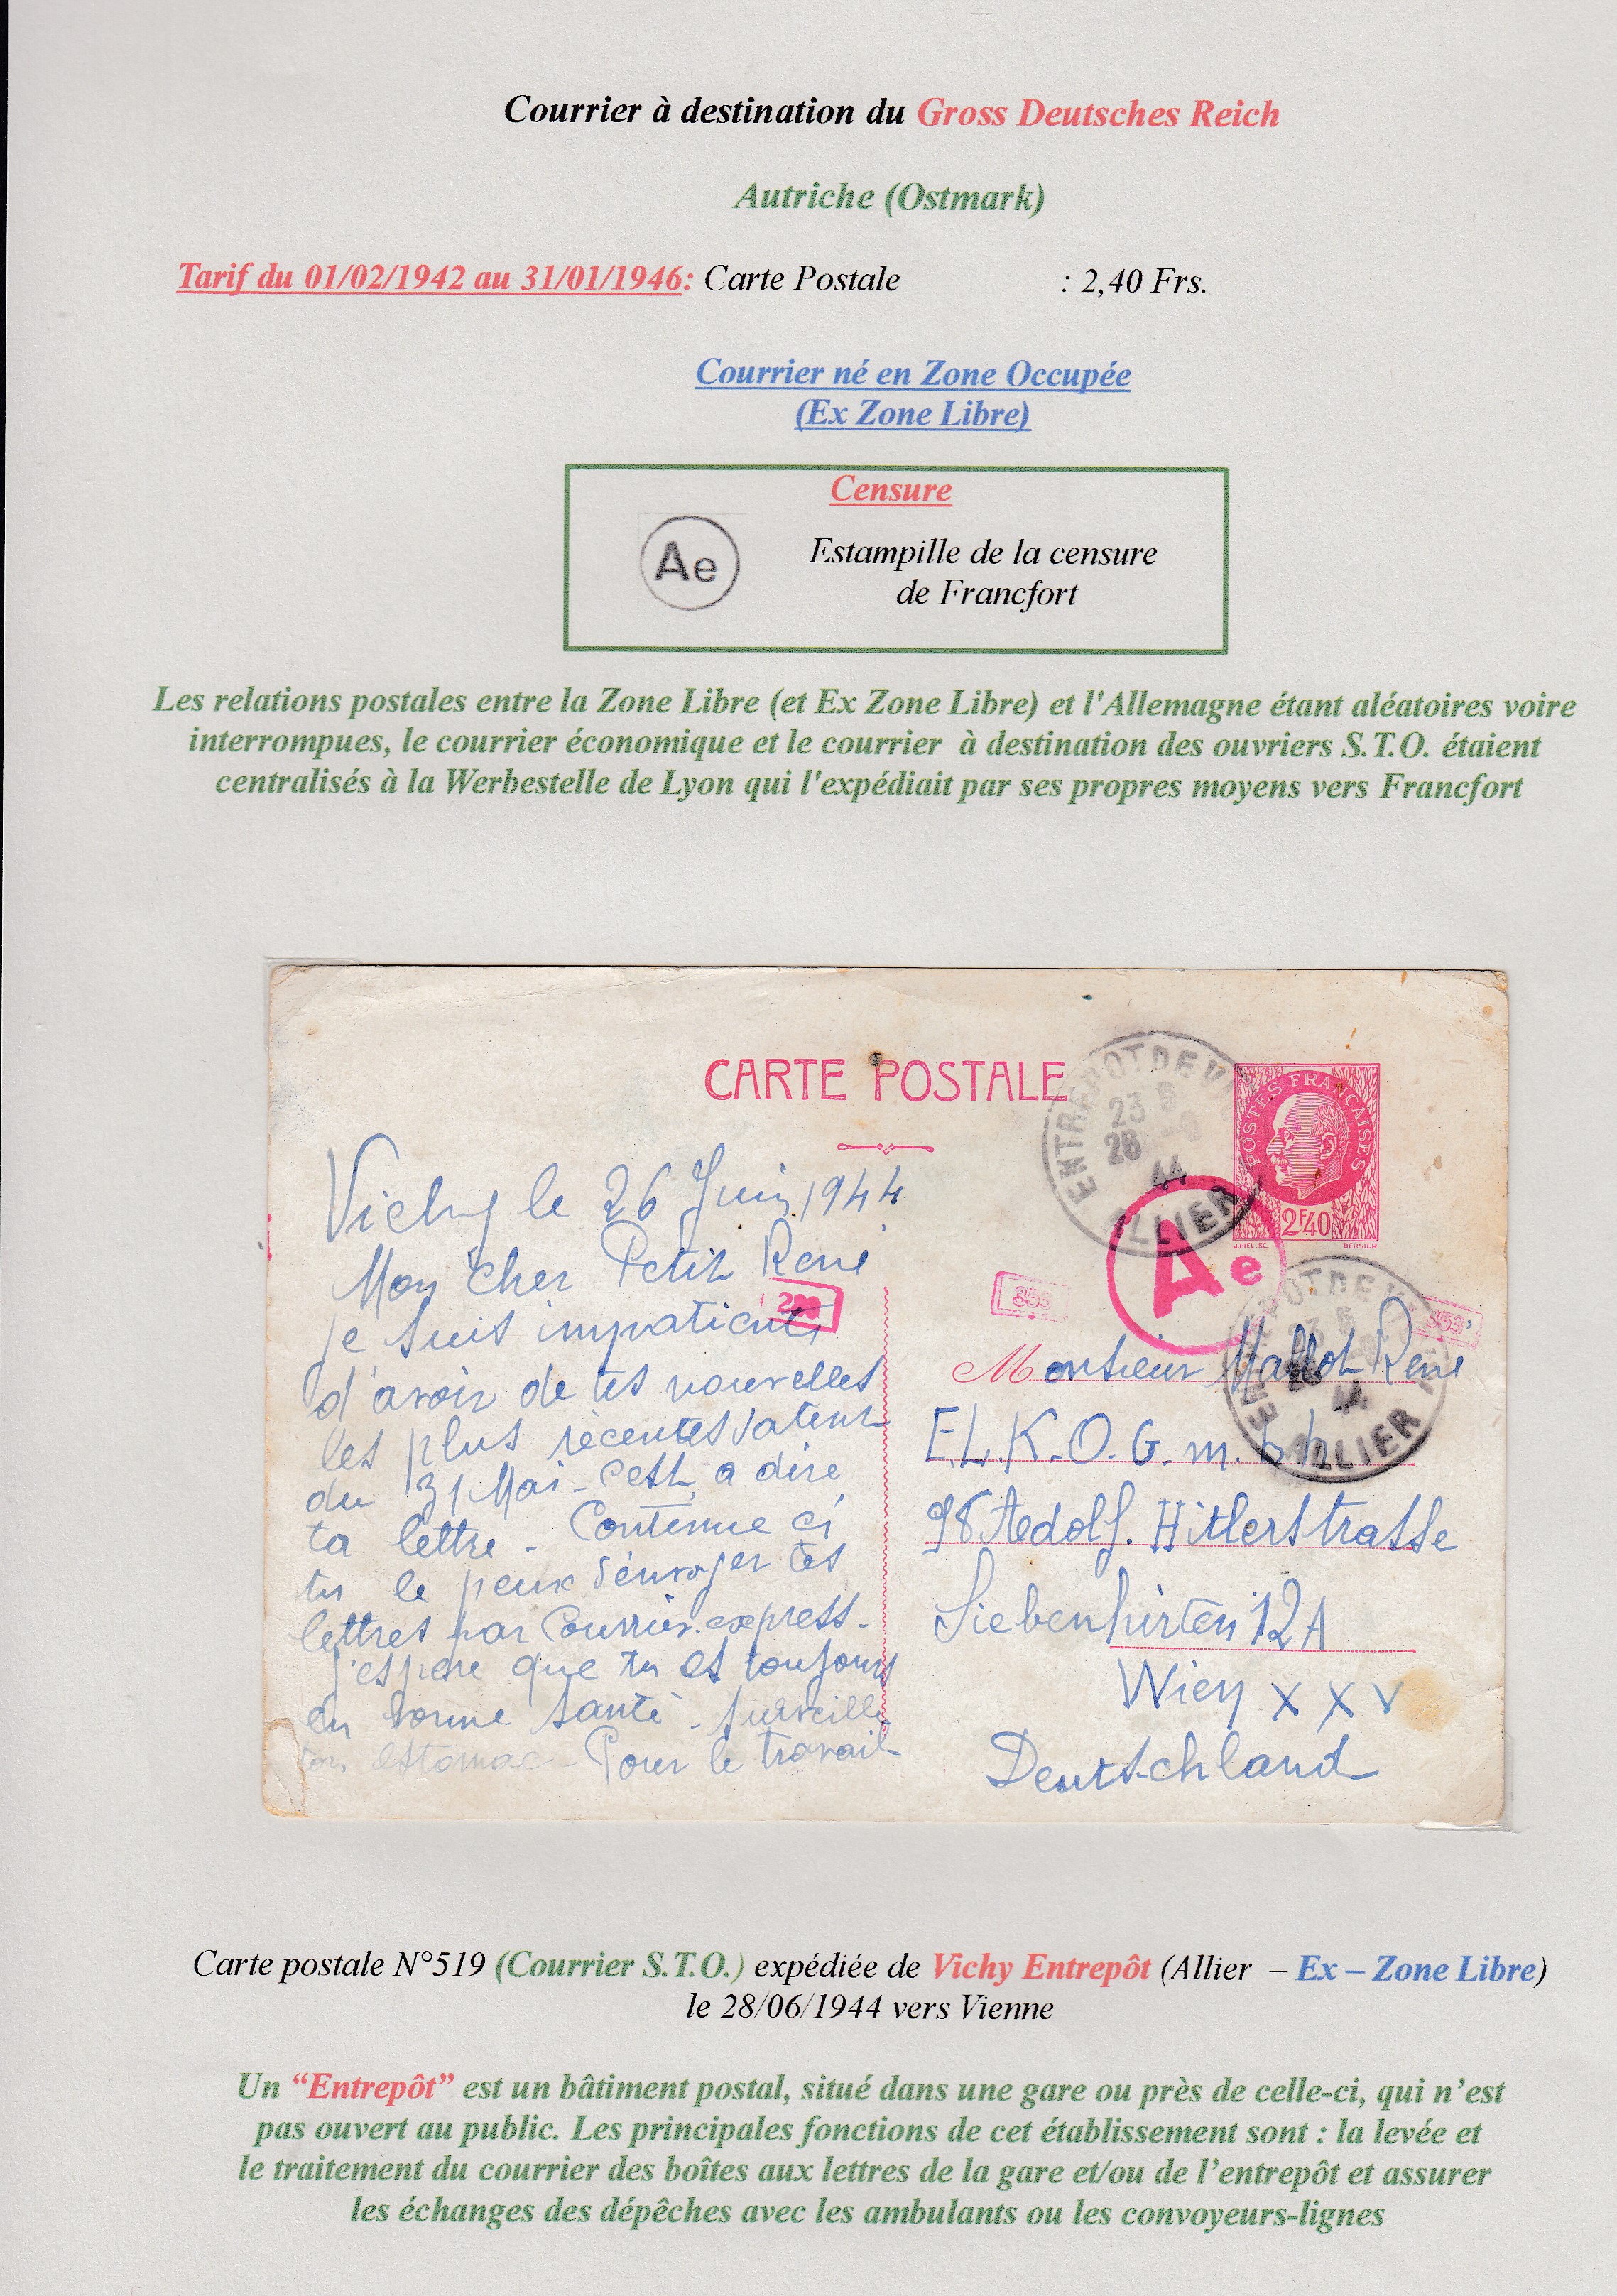 Courrier à destination du Gross Deutsches Reich
Autriche (Ostmark)
Tarif du 01/02/1942 au 31/01/1946: Carte Postale : 2,40 Frs.
Courrier né en Zone Occupée
(Ex Zone Libre)
Censure
Ae
Estampille de la censure
de Francfort
Les relations postales entre la Zone Libre (et Ex Zone Libre) et l'Allemagne étant aléatoires voire
interrompues, le courrier économique et le courrier à destination des ouvriers S.T.O. étaient
centralisés à la Werbestelle de Lyon qui l'expédiait par ses propres moyens vers Francfort
CARTE POSTALE
ENTREPOT DE VI
23
28
44
ALLIER
POSTES FRANÇAISES
2F40
J.PIEL.SC. BERSIER
Ae
353
353
Vichy le 26 Juin 1944
Mon cher Petit René
je suis impatiente
d'avoir de tes nouvelles
les plus récentes datent
du 31 Mai - C'est a dire
ta lettre - Contenue ci
tu le peux d'envoyer tes
lettres par Courrier express -
j'espère que tu es toujours
en bonne santé - surveille
ton estomac - Pour le travail
Monsieur Mallot René
E.L.K.O. G.m.b.h
98 Aedolf. Hitlerstrasse
Siebenhirten 12A
Wien XXV
Deutschland
ALLIER
44
Carte postale N°519 (Courrier S.T.O.) expédiée de Vichy Entrepôt (Allier – Ex – Zone Libre)
le 28/06/1944 vers Vienne
Un “Entrepôt” est un bâtiment postal, situé dans une gare ou près de celle-ci, qui n’est
pas ouvert au public. Les principales fonctions de cet établissement sont : la levée et
le traitement du courrier des boîtes aux lettres de la gare et/ou de l’entrepôt et assurer
les échanges des dépêches avec les ambulants ou les convoyeurs-lignes